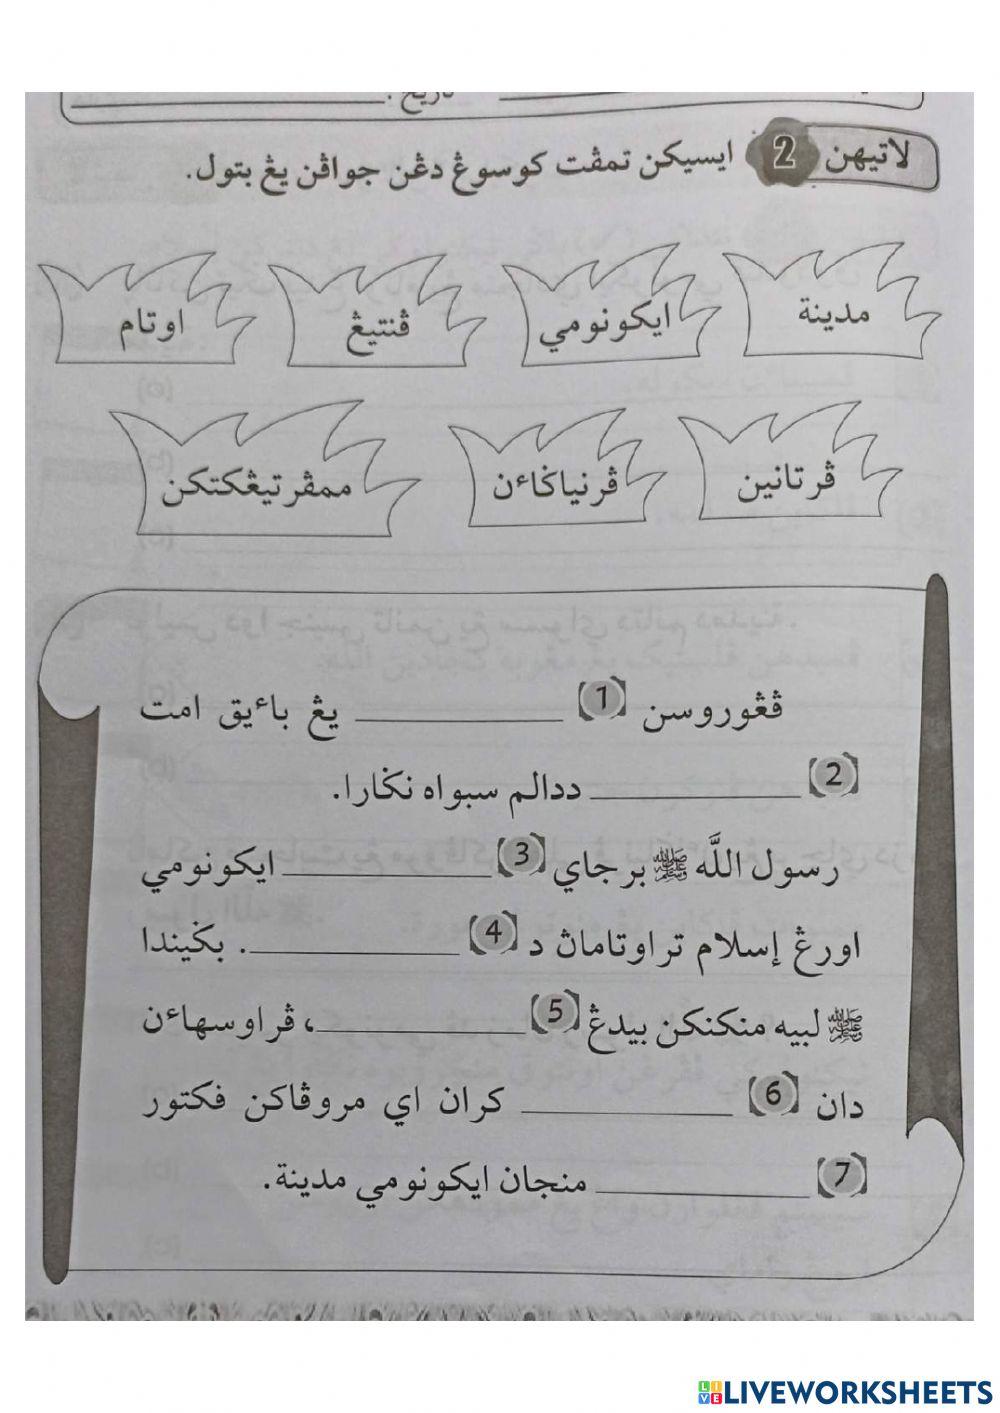 تاريخ :
لاتيهن 2 ايسيکن تمڤت کوسوڠ دڠن جواڤن يڠ بتول.
مدينة ايکونومي ڤنتيڠ اوتام
ڤرتانين ڤرنياݢاءن ممڤرتيڠکتکن
ڤڠوروسن 1 ____________ يڠ باءيق امت
2 ____________ ددالم سبواه نݢارا.
رسول اللَّه ﷺ برجاي 3 ____________ ايکونومي
اورڠ إسلام تراوتاماڽ د 4 ____________. بݢيندا
ﷺ لبيه منکنکن بيدڠ 5 ____________، ڤراوسهاءن
دان 6 ____________ کران اي مروڤاکن فکتور
7 ____________ منجان ايکونومي مدينة.
LIVE LIVEWORKSHEETS